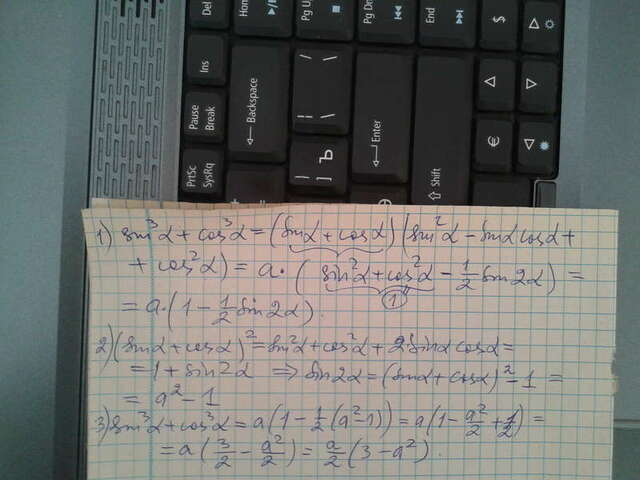 Del
Home
Pg Up
Pg Dn
End
$
Ins
Backspace
\
|
Enter
Shift
€
Pause
Break
PrtSc
SysRq
Ъ
]
}
+
=
1) sin³α + cos³α = (sinα + cosα)(sin²α - sinα cosα +
+ cos²α) = a·(sin²α + cos²α - 1/2 sin2α) =
1
= a·(1 - 1/2 sin2α).
2) (sinα + cosα)² = sin²α + cos²α + 2 sinα cosα =
= 1 + sin2α ⇒ sin2α = (sinα + cosα)² - 1 =
= a² - 1
3) sin³α + cos³α = a(1 - 1/2(a² - 1)) = a(1 - a²/2 + 1/2) =
= a(3/2 - a²/2) = a/2(3 - a²).